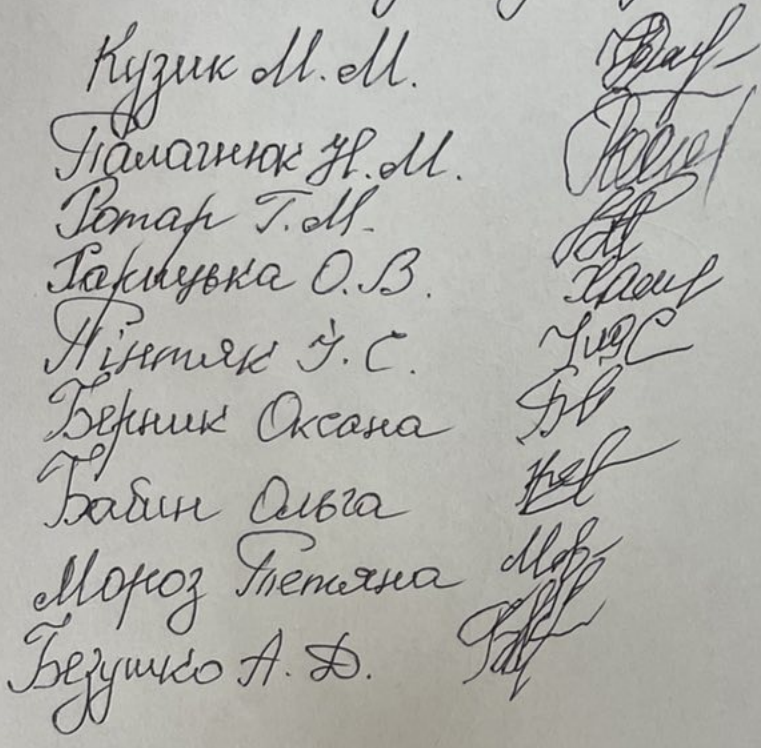 Кузик М. М.
Палагнюк Н. М.
Ротар Г. М.
Харицька О. В.
Пінтяк І. С.
Берник Оксана
Бабин Ольга
Мороз Тетяна
Безушко А. Д.